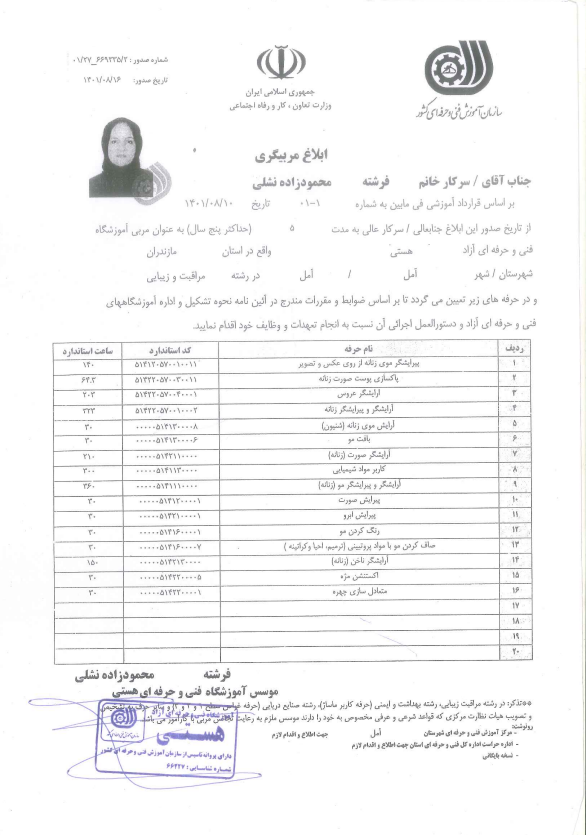 شماره صدور : ۰۱/۲۷_۶۶۹۲۳۵/۲
تاریخ صدور: ۱۴۰۱/۰۸/۱۶
جمهوری اسلامی ایران
وزارت تعاون ، کار و رفاه اجتماعی
سازمان آموزش فنی و حرفه ای کشور
ابلاغ مربیگری
جناب آقای / سرکار خانم فرشته محمودزاده نشلی
بر اساس قرارداد آموزشی فی مابین به شماره ۰۱-۱ تاریخ ۱۴۰۱/۰۸/۱۰
از تاریخ صدور این ابلاغ جنابعالی / سرکار عالی به مدت ۵ (حداکثر پنج سال) به عنوان مربی آموزشگاه
فنی و حرفه ای آزاد هستی واقع در استان مازندران
شهرستان / شهر آمل / آمل در رشته مراقبت و زیبایی
و در حرفه های زیر تعیین می گردد تا بر اساس ضوابط و مقررات مندرج در آئین نامه نحوه تشکیل و اداره آموزشگاههای
فنی و حرفه ای آزاد و دستورالعمل اجرائی آن نسبت به انجام تعهدات و وظایف خود اقدام نمایید.
ردیف نام حرفه کد استاندارد ساعت استاندارد
۱ پیرایشگر موی زنانه از روی عکس و تصویر ۵۱۴۱۲۰۵۷۰۰۱۰۰۱۱ ۱۴۰
۲ پاکسازی پوست صورت زنانه ۵۱۴۲۲۰۵۷۰۰۳۰۰۱۱
۳ آرایشگر عروس ۵۱۴۲۲۰۵۷۰۰۴۰۰۱ ۲۰۳
۴ آرایشگر و پیرایشگر زنانه ۵۱۴۲۲۰۵۷۰۰۱۰۰۰۲ ۳۲۳
۵ آرایش موی زنانه (شنیون) ۰۰۰۰۰۵۱۴۱۳۰۰۰۰۸ ۳۰
۶ بافت مو ۰۰۰۰۰۵۱۴۱۳۰۰۰۰۶ ۳۰
۷ آرایشگر صورت (زنانه) ۰۰۰۰۰۵۱۴۲۱۱۰۰۰۰ ۲۱۰
۸ کاربر مواد شیمیایی ۰۰۰۰۰۵۱۴۱۱۳۰۰۰۰ ۳۰۰
۹ آرایشگر و پیرایشگر مو (زنانه) ۰۰۰۰۰۵۱۴۱۱۱۰۰۰۰ ۳۶۰
۱۰ پیرایش صورت ۰۰۰۰۰۵۱۴۱۲۰۰۰۰۱ ۳۰
۱۱ پیرایش ابرو ۰۰۰۰۰۵۱۴۲۱۰۰۰۰۱ ۳۰
۱۲ رنگ کردن مو ۰۰۰۰۰۵۱۴۱۶۰۰۰۰۱ ۳۰
۱۳ صاف کردن مو با مواد پروتیینی (ترمیم، احیا وکراتینه ) ۰۰۰۰۰۵۱۴۱۶۰۰۰۰۷ ۳۰
۱۴ آرایشگر ناخن (زنانه) ۰۰۰۰۰۵۱۴۲۱۳۰۰۰۰ ۱۵۰
۱۵ اکستنشن مژه ۰۰۰۰۰۵۱۴۲۲۰۰۰۰۵ ۳۰
۱۶ متعادل سازی چهره ۰۰۰۰۰۵۱۴۲۲۰۰۰۰۱ ۳۰
۱۷
۱۸
۱۹
۲۰
فرشته محمودزاده نشلی
موسس آموزشگاه فنی و حرفه ای هستی
**تذکر: در رشته مراقبت زیبایی، رشته بهداشت و ایمنی (حرفه کاربر ماساژ)، رشته صنایع دریایی (حرفه غواصی سطح ۱ و ۲ و ۳) و سایر حرف به تشخیص
و تصویب هیات نظارت مرکزی که قواعد شرعی و عرفی مخصوص به خود را دارند موسس ملزم به رعایت تجانس مربی با کارآموز می باشد.
رونوشت:
- مرکز آموزش فنی و حرفه ای شهرستان آمل جهت اطلاع و اقدام لازم
- اداره حراست اداره کل فنی و حرفه ای استان جهت اطلاع و اقدام لازم
- نسخه بایگانی
آموزشگاه فنی و حرفه ای آزاد
هستی
دارای پروانه تاسیس از سازمان آموزش فنی و حرفه ای کشور
شماره شناسایی : ۶۶۲۲۷